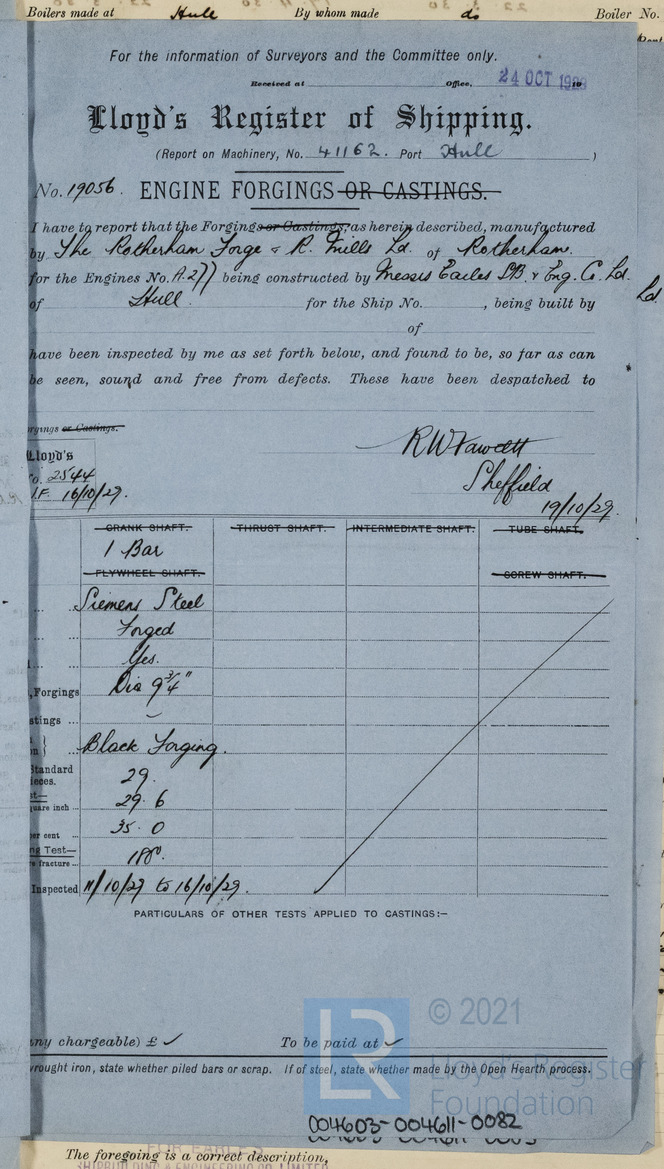 Boilers made at Hull By whom made do Boiler No.
For the information of Surveyors and the Committee only.
Received at Office, 24 OCT 1929
Lloyd's Register of Shipping.
(Report on Machinery, No. 41162. Port Hull )
No. 19056. ENGINE FORGINGS OR CASTINGS.
I have to report that the Forgings or Castings, as herein described, manufactured
by The Rotherham Forge & R. Mills Ld. of Rotherham.
for the Engines No. A.277 being constructed by Messrs Earles SB. & Eng. Co. Ld.
Ld.
of Hull. for the Ship No. , being built by
of
have been inspected by me as set forth below, and found to be, so far as can
be seen, sound and free from defects. These have been despatched to
rgings or Castings.
Lloyd's
o. 2544
16/10/29.
RW Fawcett
Sheffield
19/10/29.
CRANK SHAFT. THRUST SHAFT. INTERMEDIATE SHAFT. TUBE SHAFT.
1 Bar
FLYWHEEL SHAFT. SCREW SHAFT.
Siemens Steel
Forged
Yes.
, Forgings Dia 9 3/4"
stings ...
Black Forging.
Standard
ieces. 29.
st—
quare inch ... 29.6
er cent ... 35.0
ng Test—
fracture ... 180°.
Inspected 11/10/29 to 16/10/29.
PARTICULARS OF OTHER TESTS APPLIED TO CASTINGS:—
ny chargeable) £ ✓ To be paid at ✓
wrought iron, state whether piled bars or scrap. If of steel, state whether made by the Open Hearth process.
LR
© 2021
Lloyd's Register
Foundation
004603-004611-0082
The foregoing is a correct description,
FOR EARLE'S
SHIPBUILDING & ENGINEERING CO. LIMITED